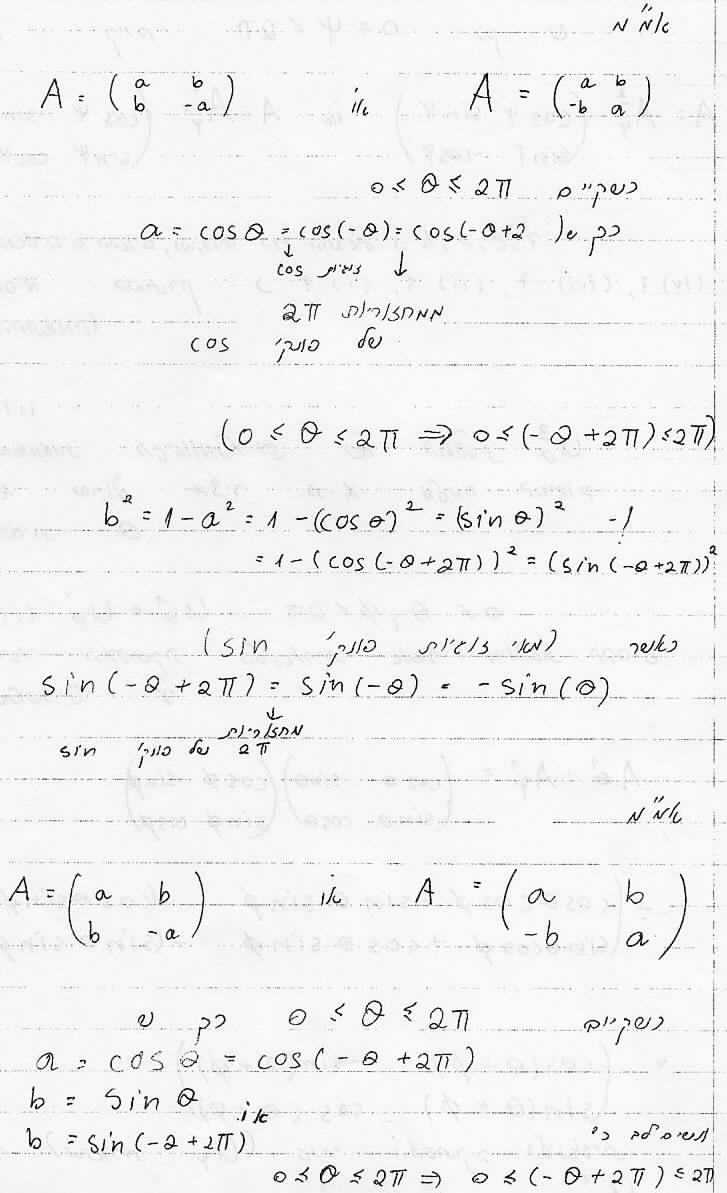 אמ"מ
A = ( a b / -b a ) או A = ( a b / b -a )
כשקיים 0 ≤ θ ≤ 2π
כך ש( a = cos θ = cos(-θ) = cos(-θ+2
↓ זוגיות cos ↓
ממחזוריות 2π
של פונק' cos
(0 ≤ θ ≤ 2π ⇒ 0 ≤ (-θ + 2π) ≤ 2π)
ו- b² = 1 - a² = 1 - (cos θ)² = (sin θ)²
= 1 - (cos(-θ+2π))² = (sin(-θ+2π))²
כאשר (מאי זוגיות פונק' sin)
sin(-θ + 2π) = sin(-θ) = -sin(θ)
↓
מחזוריות
2π של פונק' sin
אמ"מ
A = ( a b / -b a ) או A = ( a b / b -a )
כשקיים 0 ≤ θ ≤ 2π כך ש
a = cos θ = cos(-θ + 2π)
b = sin θ
או
b = sin(-θ + 2π)
ונשים לב כי
0 ≤ θ ≤ 2π ⇒ 0 ≤ (-θ + 2π) ≤ 2π